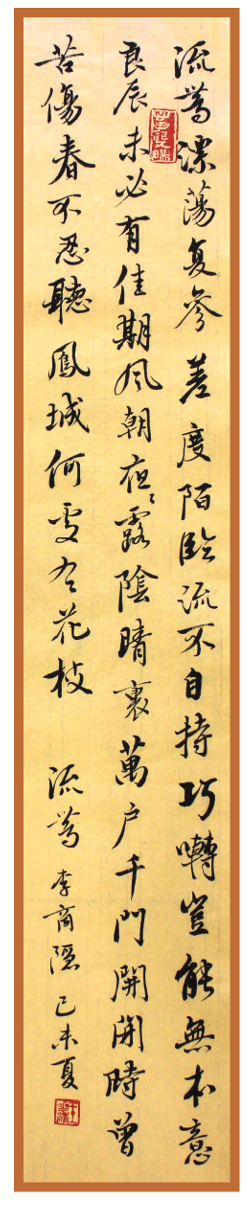 流鶯漂蕩复參差度陌臨流不自持巧囀豈能無本意
良辰未必有佳期風朝夜露陰晴裏萬戶千門開閉時曾
苦傷春不忍聽鳳城何處有花枝 流鶯 李商隱 己未夏